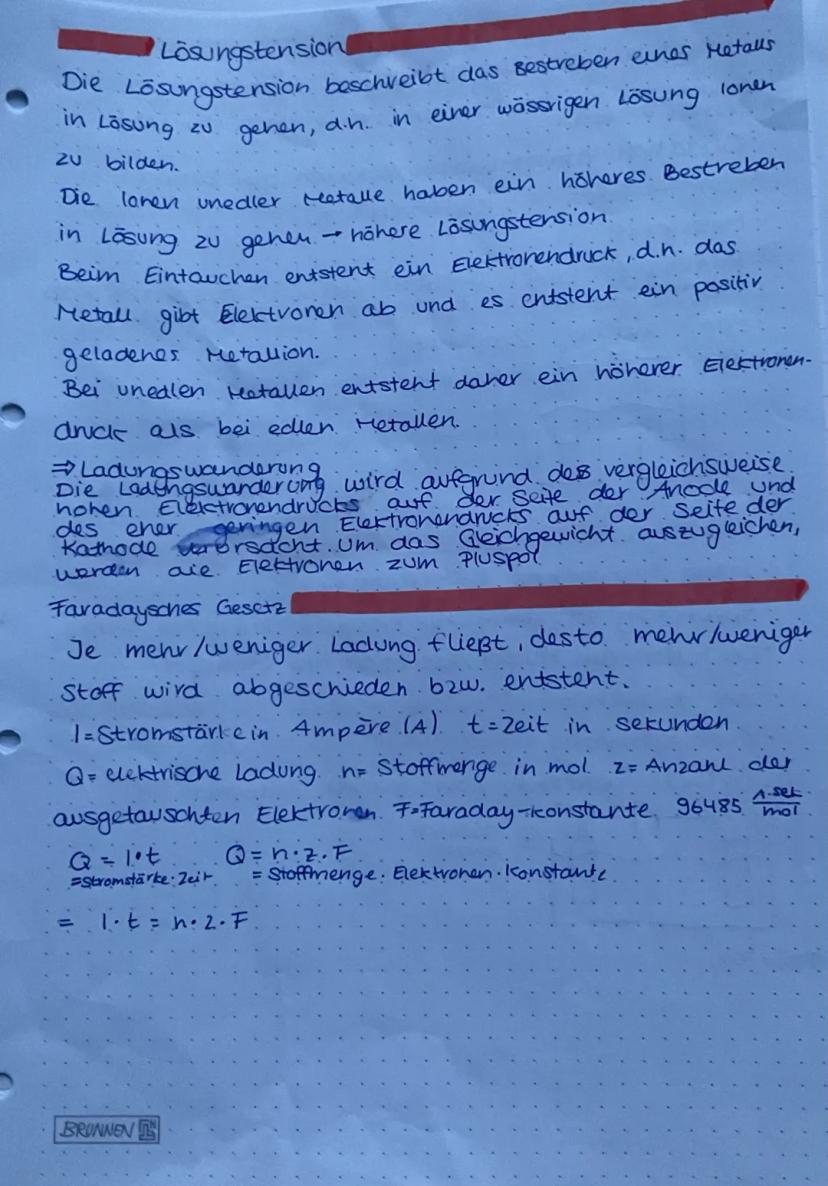 Lösungstension
Die Lösungstension beschreibt das Bestreben eines Metalls
in Lösung zu gehen, d.h. in einer wässrigen Lösung Ionen
zu bilden.
Die Ionen unedler Metalle haben ein höheres Bestreben
in Lösung zu gehen → höhere Lösungstension
Beim Eintauchen entsteht ein Elektronendruck, d.h. das
Metall gibt Elektronen ab und es entsteht ein positiv
geladenes Metallion.
Bei unedlen Metallen entsteht daher ein höherer Elektronen-
druck als bei edlen Metallen.
⇒ Ladungswanderung
Die Ladungswanderung wird aufgrund des vergleichsweise
hohen Elektronendrucks auf der Seite der Anode und
des eher geringen Elektronendrucks auf der Seite der
Kathode verursacht. Um das Gleichgewicht auszugleichen,
werden die Elektronen zum Pluspol
Faradaysches Gesetz
Je mehr/weniger Ladung fließt, desto mehr/weniger
Stoff wird abgeschieden bzw. entsteht.
I=Stromstärke in Ampère (A) t=Zeit in sekunden
Q= elektrische Ladung n= Stoffmenge in mol z= Anzahl der
ausgetauschten Elektronen F=Faraday-Konstante 96485 A·sek/mol
Q = I·t Q = n·z·F
=Stromstärke·Zeit = Stoffmenge·Elektronen·Konstante
= I·t = n·z·F
BRUNNEN